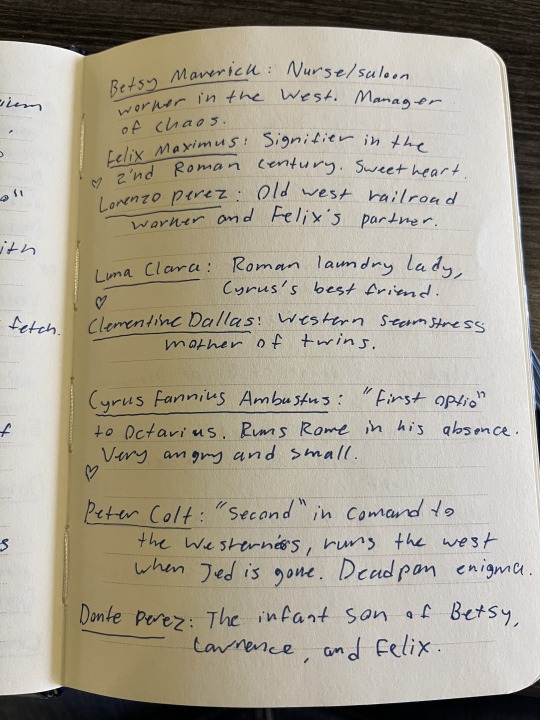 Betsy Maverick: Nurse/saloon
worker in the West. Manager
of chaos.
Felix Maximus: Signifier in the
♡ 2'nd Roman century. Sweetheart.
Lorenzo perez: Old west railroad
worker and Felix's partner.
Luna Clara: Roman laundry lady,
Cyrus's best friend.
♡
Clementine Dallas: Western seamstress
mother of twins.
Cyrus Fannius Ambustus: "First optio"
to Octavius. Runs Rome in his absence.
Very angry and small.
♡
Peter Colt: "Second" in comand to
the Westerners, runs the west
when Jed is gone. Deadpan enigma.
Dante perez: The infant son of Betsy,
Lawrence, and Felix.
ith
fetch.